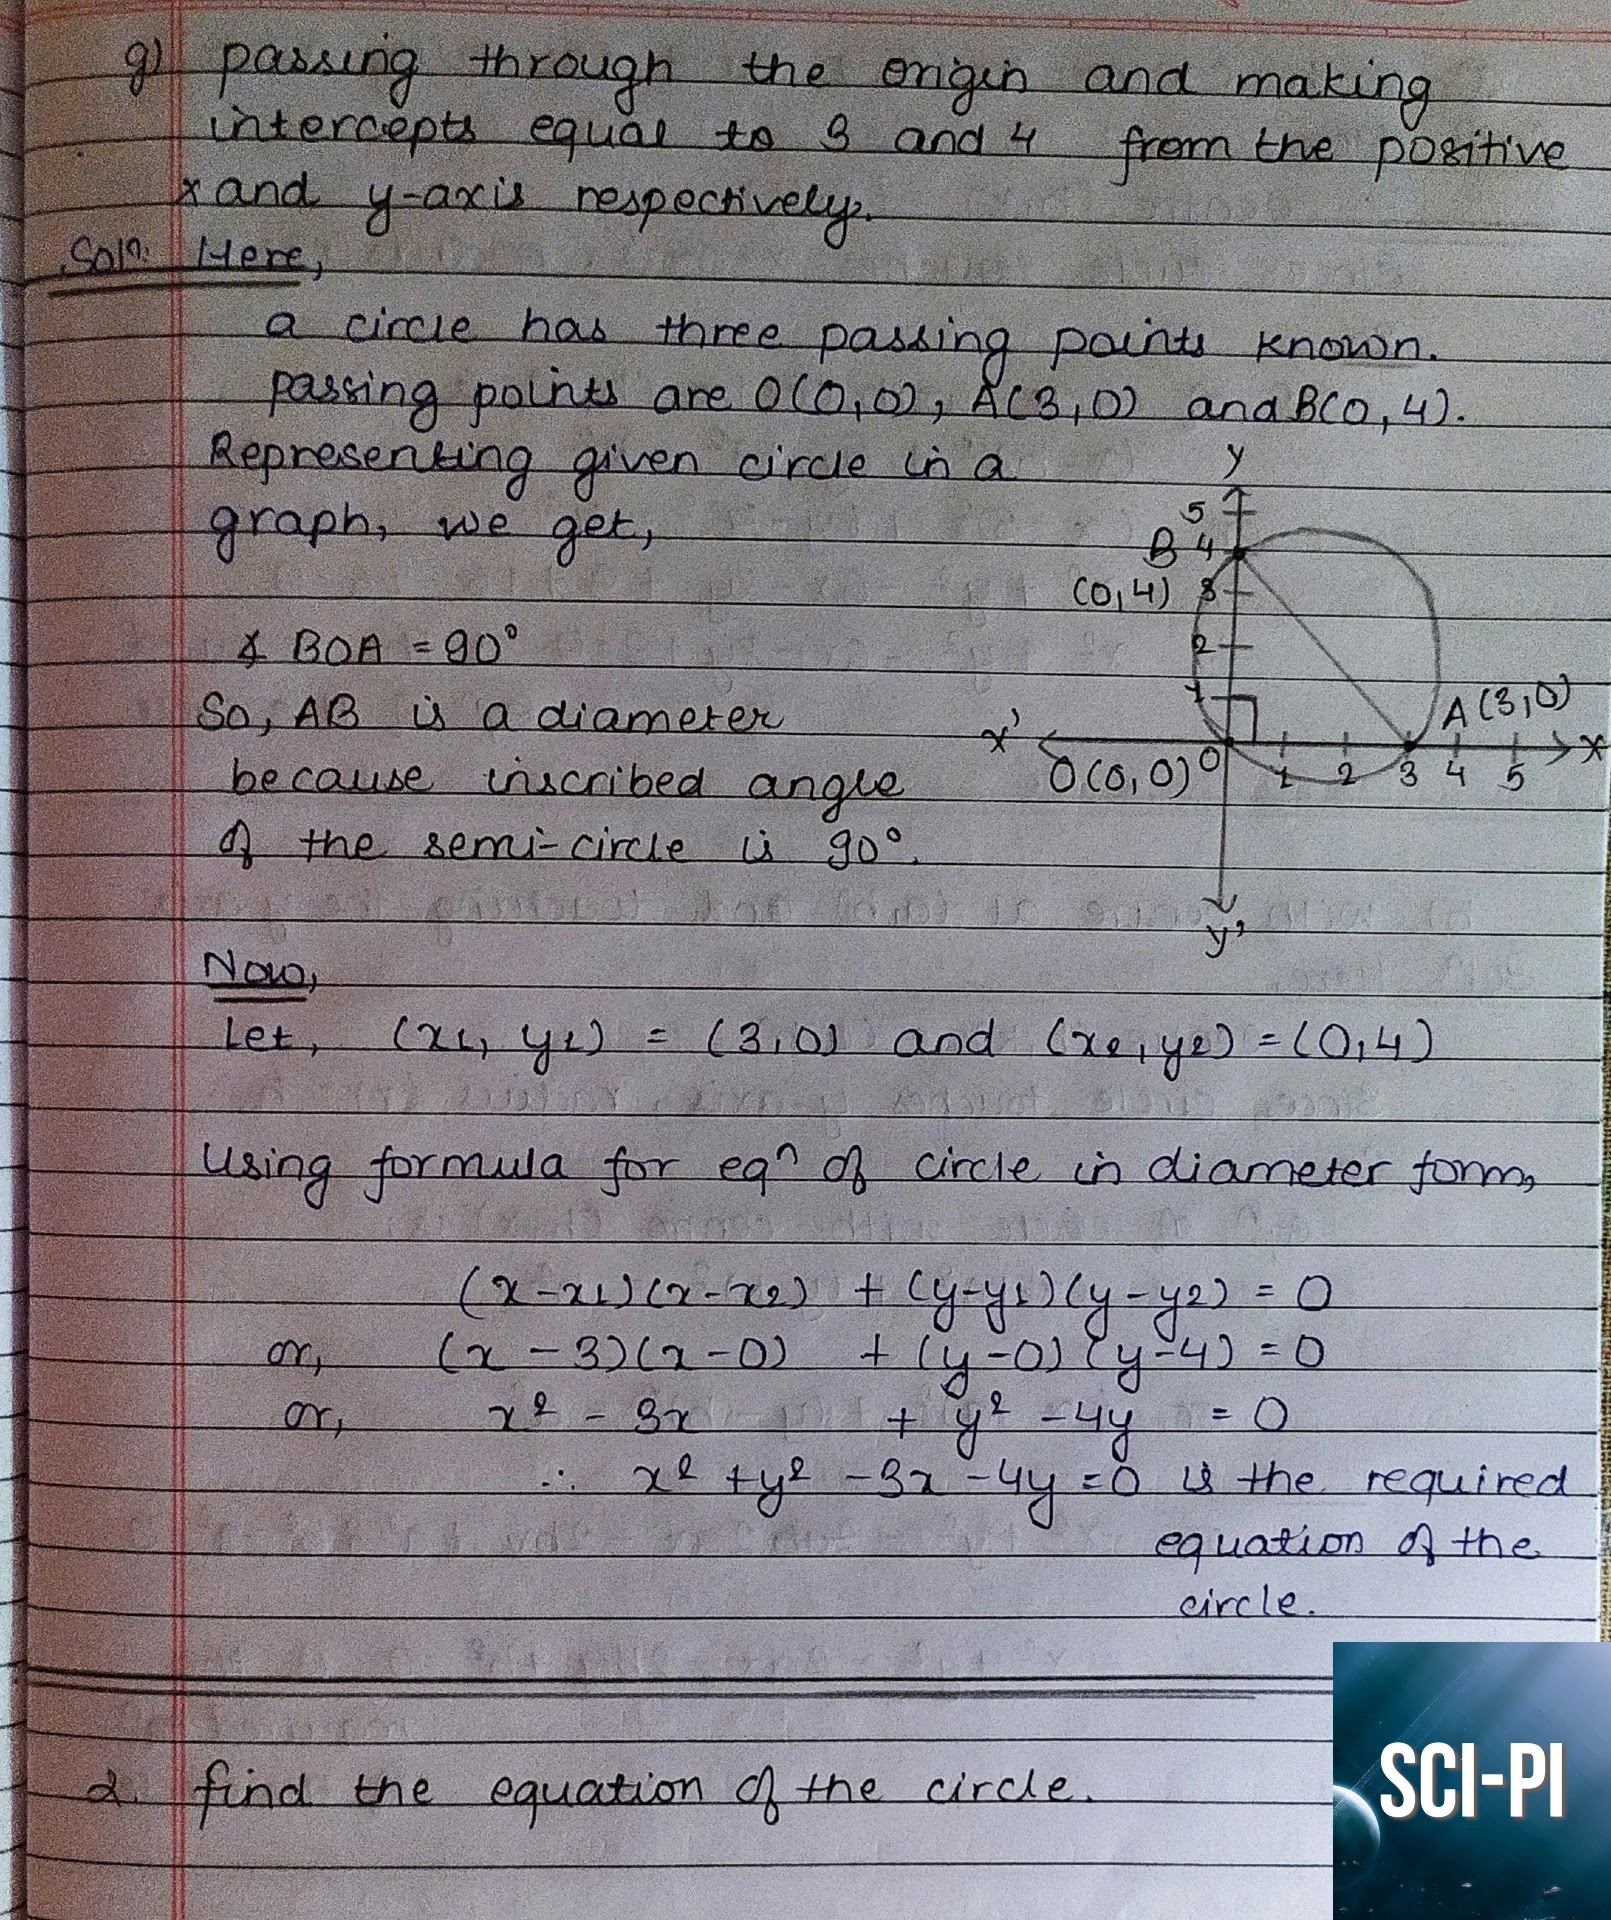 g) passing through the origin and making
intercepts equal to 3 and 4 from the positive
x and y-axis respectively.
Solⁿ: Here,
a circle has three passing points known.
passing points are O(0,0), A(3,0) and B(0,4).
Representing given circle in a
graph, we get,
y
5
B 4
(0,4) 3
2
1
A(3,0)
x'
x
O(0,0) 0 1 2 3 4 5
y'
∡ BOA = 90°
So, AB is a diameter
because inscribed angle
of the semi-circle is 90°.
Now,
Let, (x₁, y₁) = (3,0) and (x₂, y₂) = (0,4)
Using formula for eqⁿ of circle in diameter form,
(x-x₁)(x-x₂) + (y-y₁)(y-y₂) = 0
or, (x - 3)(x-0) + (y-0)(y-4) = 0
or, x² - 3x + y² - 4y = 0
∴ x² + y² - 3x - 4y = 0 is the required
equation of the
circle.
2. find the equation of the circle.
SCI-PI